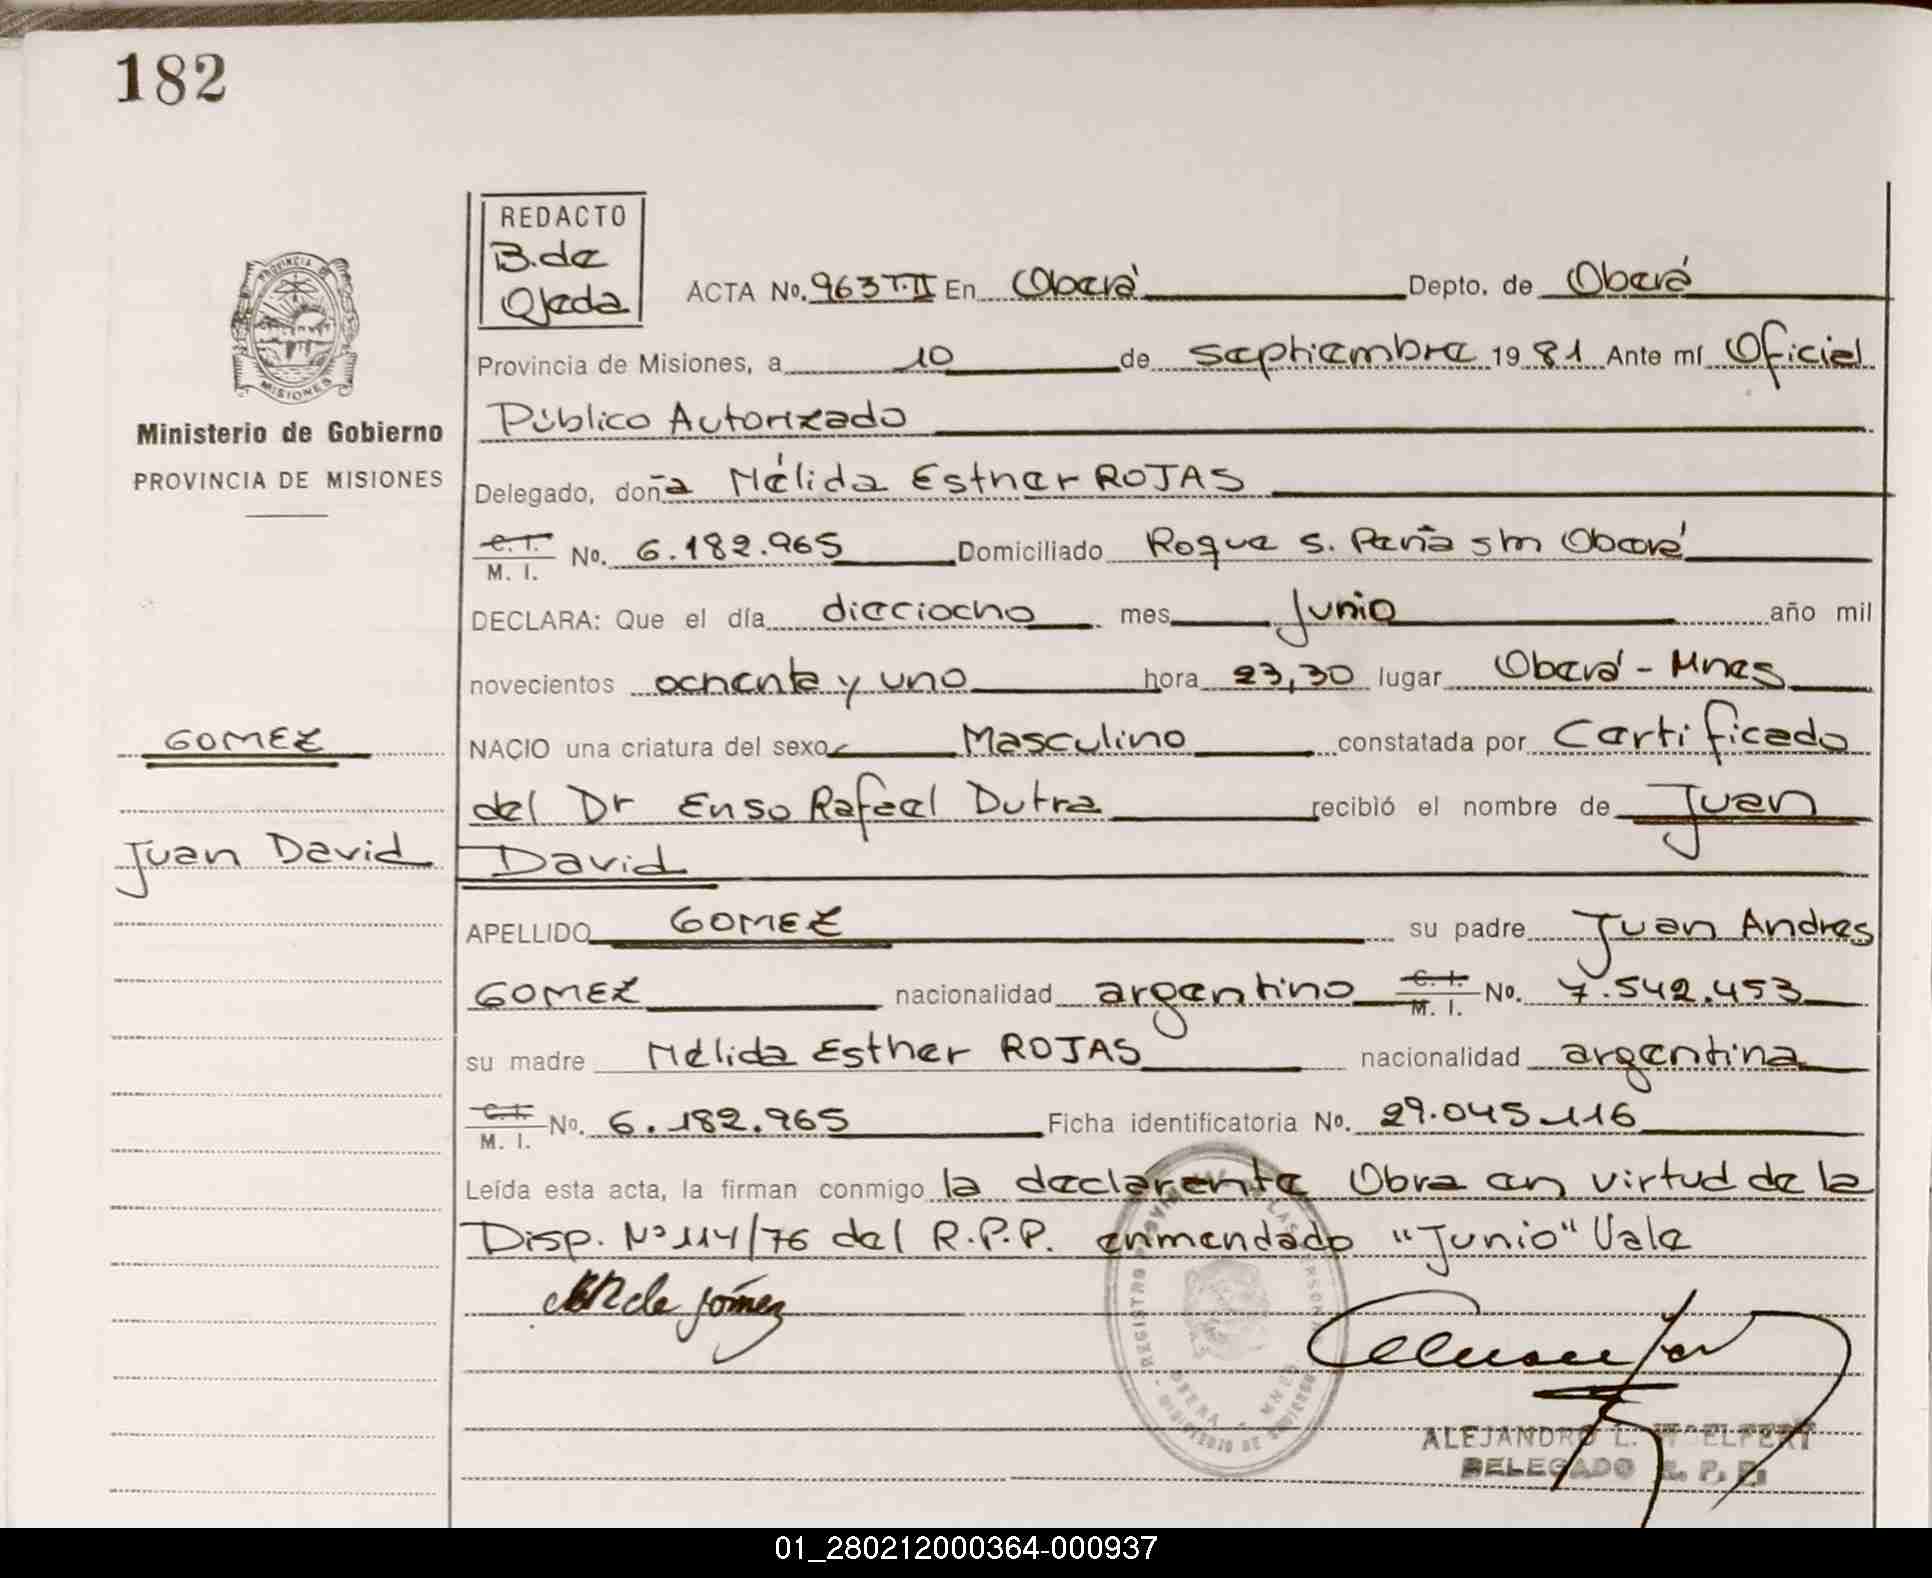 182
REDACTO
B. de
Ojeda
ACTA No. 963 T.II En Oberá Depto. de Oberá
Provincia de Misiones, a 10 de septiembre 19 81 Ante mí Oficial
Público Autorizado
Delegado, doña Nélida Esther ROJAS
C. I.
M. I. No. 6.182.965 Domiciliado Roque S. Peña s/n Oberá
DECLARA: Que el día dieciocho mes Junio año mil
novecientos ochenta y uno hora 23,30 lugar Oberá - Mnes
NACIO una criatura del sexo Masculino constatada por Certificado
del Dr Enso Rafael Dutra recibió el nombre de Juan
David
APELLIDO GOMEZ su padre Juan Andres
GOMEZ nacionalidad argentino C. I.
M. I. No. 7.542.453
su madre Nélida Esther ROJAS nacionalidad argentina
C. I.
M. I. No. 6.182.965 Ficha identificatoria No. 29.045.116
Leída esta acta, la firman conmigo la declarente Obra en virtud de la
Disp. Nº 114/76 del R.P.P. enmendado "Junio" Vale
de Gómez
ALEJANDRO L.
DELEGADO R. P. P.
PROVINCIA DE
MISIONES
Ministerio de Gobierno
PROVINCIA DE MISIONES
GOMEZ
Juan David
REGISTRO PROVINCIAL DE LAS PERSONAS
MINISTERIO DE GOBIERNO
OBERA - MNES
01_280212000364-000937